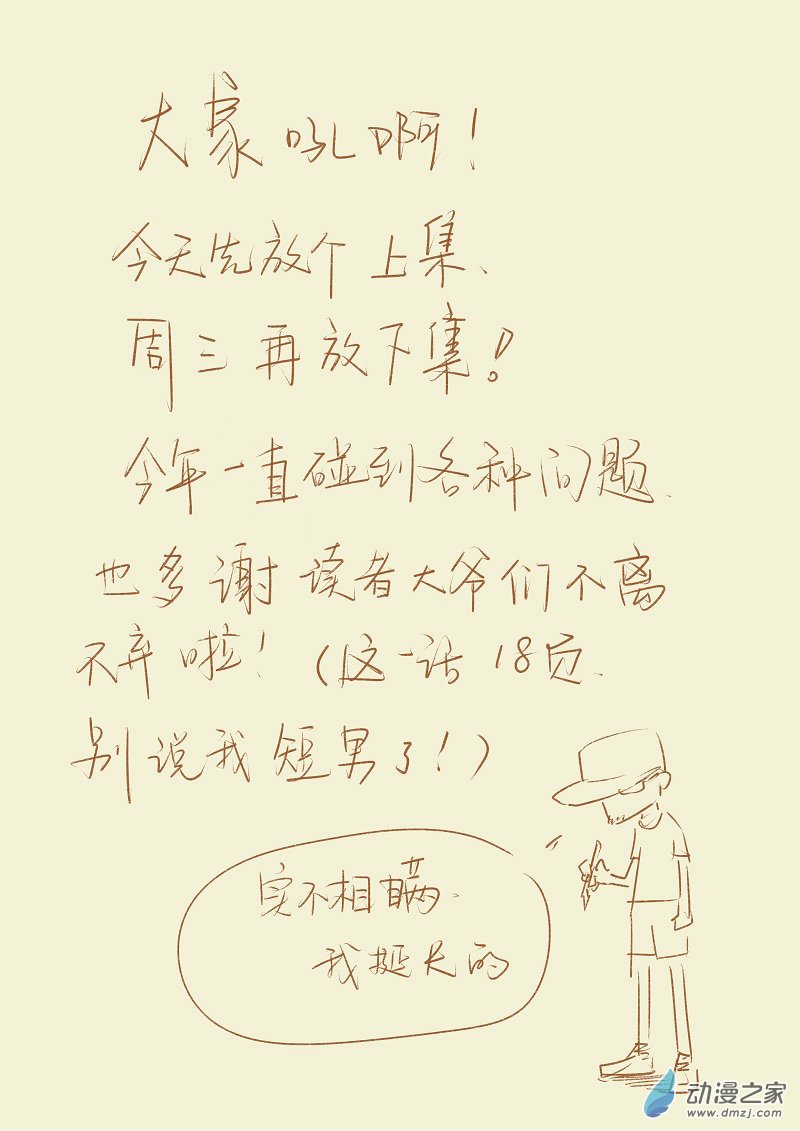 大家吼啊！
今天先放个上集、
周三再放下集！
今年一直碰到各种问题、
也多谢读者大爷们不离
不弃啦！（这一话18页、
别说我短男了！）
实不相瞒、
我挺长的
动漫之家
www.dmzj.com